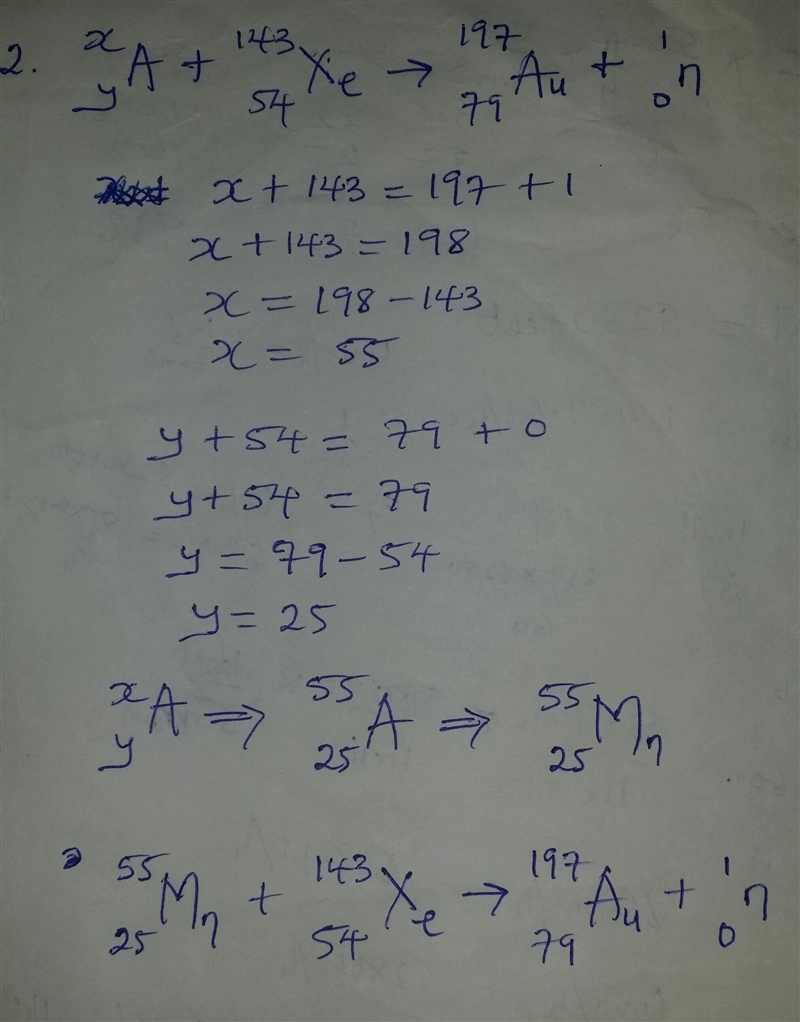 2. ˣᵧA + ¹⁴³₅₄Xe → ¹⁹⁷₇₉Au + ¹₀n
x + 143 = 197 + 1
x + 143 = 198
x = 198 - 143
x = 55
y + 54 = 79 + 0
y + 54 = 79
y = 79 - 54
y = 25
ˣᵧA ⇒ ⁵⁵₂₅A ⇒ ⁵⁵₂₅Mn
⁵⁵₂₅Mn + ¹⁴³₅₄Xe → ¹⁹⁷₇₉Au + ¹₀n